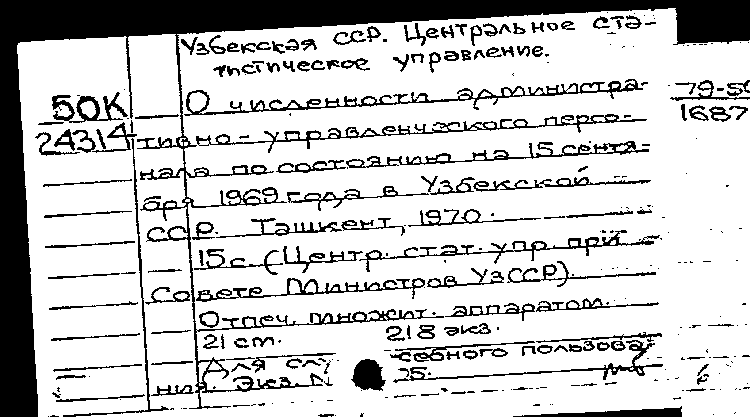 Узбекская ССР. Центральное ста-
тистическое управление.
50К
24314
О численности администра-
тивно-управленческого персо-
нала по состоянию на 15 сентя-
бря 1969 года в Узбекской
ССР. Ташкент, 1970.
15 с. (Центр. стат. упр. при
Совете Министров УзССР).
Отпеч. множит. аппаратом.
21 см. 218 экз.
Для слу себного пользова-
ния. Экз. N 25.
79-5
1687